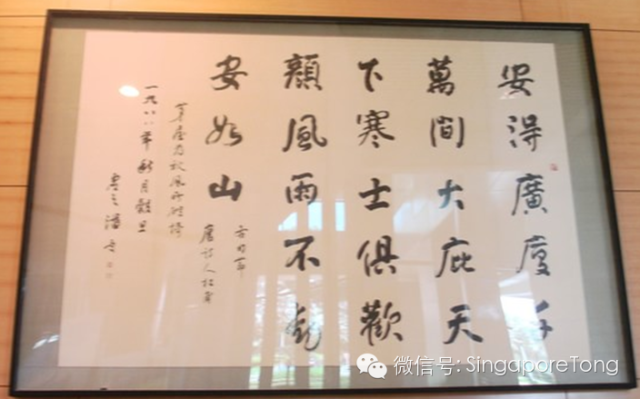 安得廣廈千
萬間大庇天
下寒士俱歡
顏風雨不動
安如山
唐詩人杜甫
茅屋為秋風所
一九八八年秋月穀旦
微信号: SingaporeTong